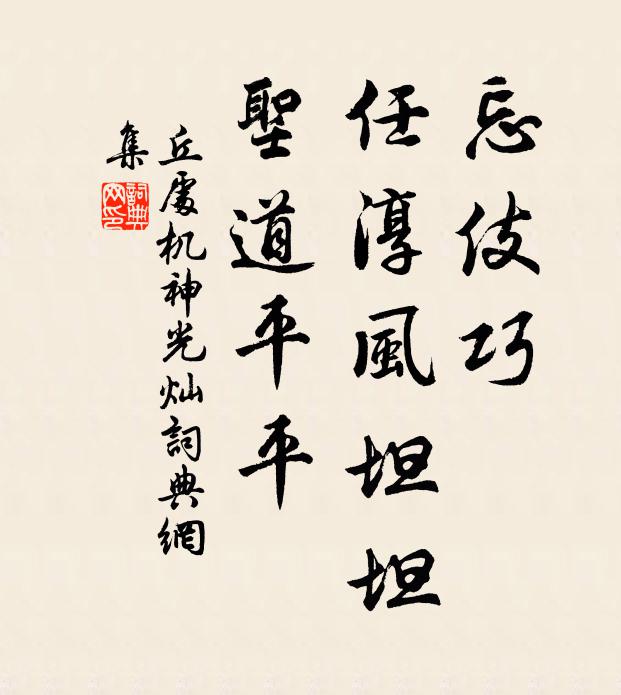 忘伎巧
任淳風坦坦
聖道平平
丘處机神光灿詞典網
集
詞典
网印